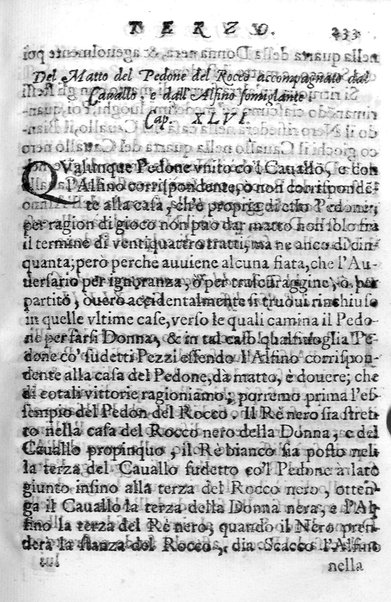 TERZO. 233
Del Matto del Pedone del Rocco accompagnato dal
Cauallo, e dall'Alfino somigliante
Cap. XLVI.
QValunque Pedone vnito co'l Cauallo, e con
l'Alfino corrispondente, ò non corrisponde
te alla casa, ch'è propria di esso Pedone,
per ragion di gioco non può dar matto non solo fra
il termine di ventiquattro tratti, ma ne anco di cin
quanta; però perche auuiene alcuna fiata, che l'Au
uersario per ignoranza, ò per trascuraggine, ò per
partito, ouero accidentalmente si truoui rinchiuso
in quelle vltime case, verso le quali camina il Pedo
ne per farsi Donna, & in tal caso qualsiuoglia Pe
done co' sudetti Pezzi essendo l'Alfino corrispon
dente alla casa del Pedone, dà matto, è douere; che
di cotali vittorie ragioniamo; porremo prima l'es
sempio del Pedon del Rocco. Il Rè nero sia stret
to nella casa del Rocco nero della Donna, e del
Cauallo propinquo, il Rè bianco sia posto nel
la terza del Cauallo sudetto co'l Pedone à lato
giunto insino alla terza del Rocco nero, otten
ga il Cauallo la terza della Donna nera, e l'Al
fino la terza del Rè nero, quando il Nero pren
derà la stanza del Rocco, dia Scacco l'Alfino
nella